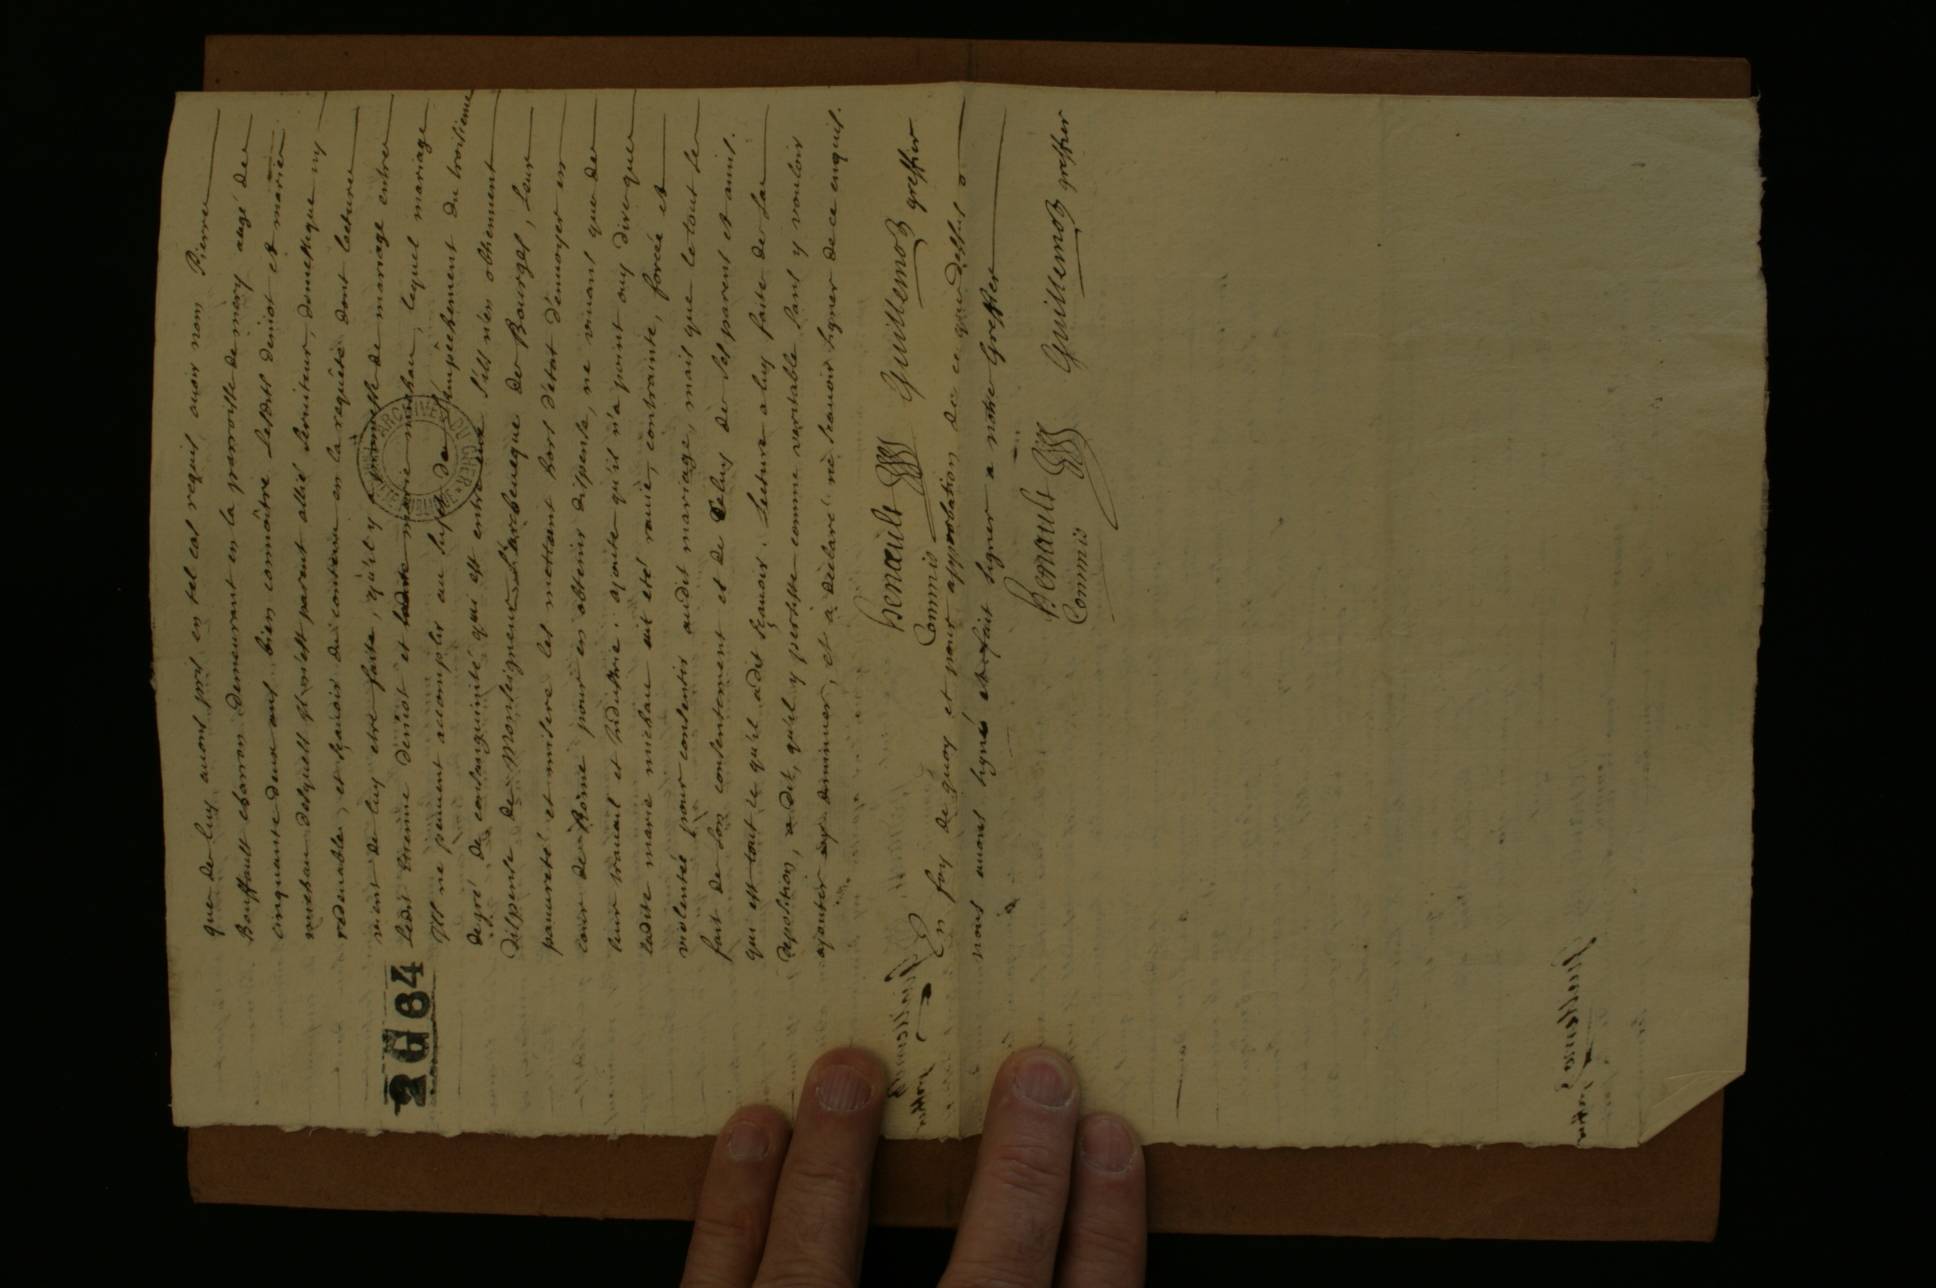 que de luy avons pris en tel cas requis, avoir nom Pierre
Bouffault charron demeurant en la parroisse de mery aagé de
cinquante deux ans bien connoitre lesdits deniot et marie
michau desquels il n'est parent allié serviteur, domestique ny
redevable, et sçavoir du contenu en la requête dont lecture
vient de luy etre faite, qu'il y a promesse de mariage entre
ledit Etienne deniot et ladite marie michau, lequel mariage
Ils ne peuvent accomplir au sujet de l'empechement du troisieme
degré de consanguinité qui est entre eux s'ils n'en obtiennent
dispense de Monseigneur L'archeveque de Bourges, leur
pauvreté et misere les mettant hors d'état d'envoyer en
cour de Rome pour en obtenir dispense, ne vivant que de
leur travail et industrie. ajoute qu'il n'a point ouy dire que
ladite marie michau ait eté ravie, contrainte, forcée et
violentée pour consentir audit mariage, mais que le tout se
fait de son consentement et de celuy de ses parens et amis.
qui est tout ce qu'il a dit sçavoir. Lecture a luy faite de sa
deposition, a dit, qu'il y persiste comme veritable sans y vouloir
ajouter ny diminuer, et a declaré ne sçavoir signer de ce enquis.
Henault Guillemot greffier
Commis
En foy de quoy et pour approbation de ce que dessus
nous avons signé et fait signer a notre Greffier
Henault Guillemot greffier
Commis
2 G 64
ARCHIVES DU CHER